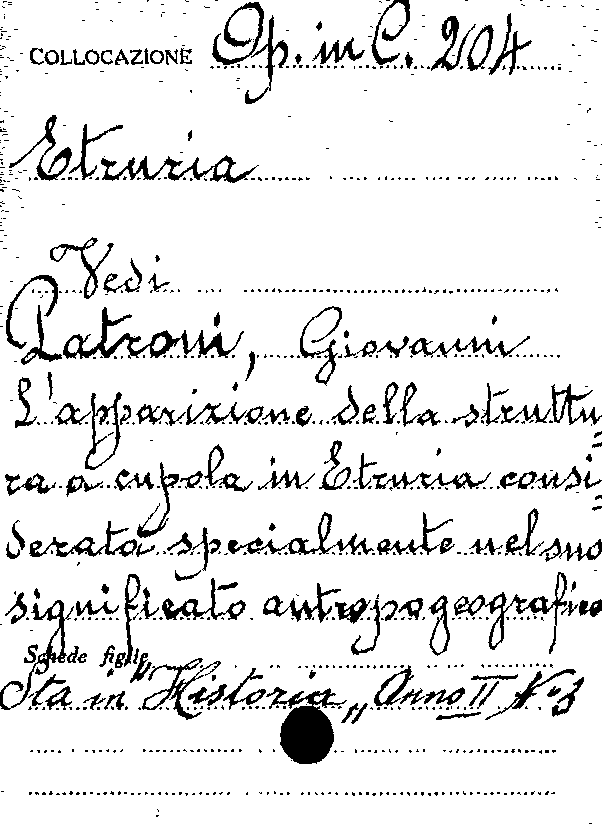 COLLOCAZIONE Op. in C. 204
Etruria
Vedi
Patroni, Giovanni
L'apparizione della struttu=
ra a cupola in Etruria consi=
derata specialmente nel suo
significato antropogeografico
Schede figlie
Sta in "Historia" Anno II N. 3